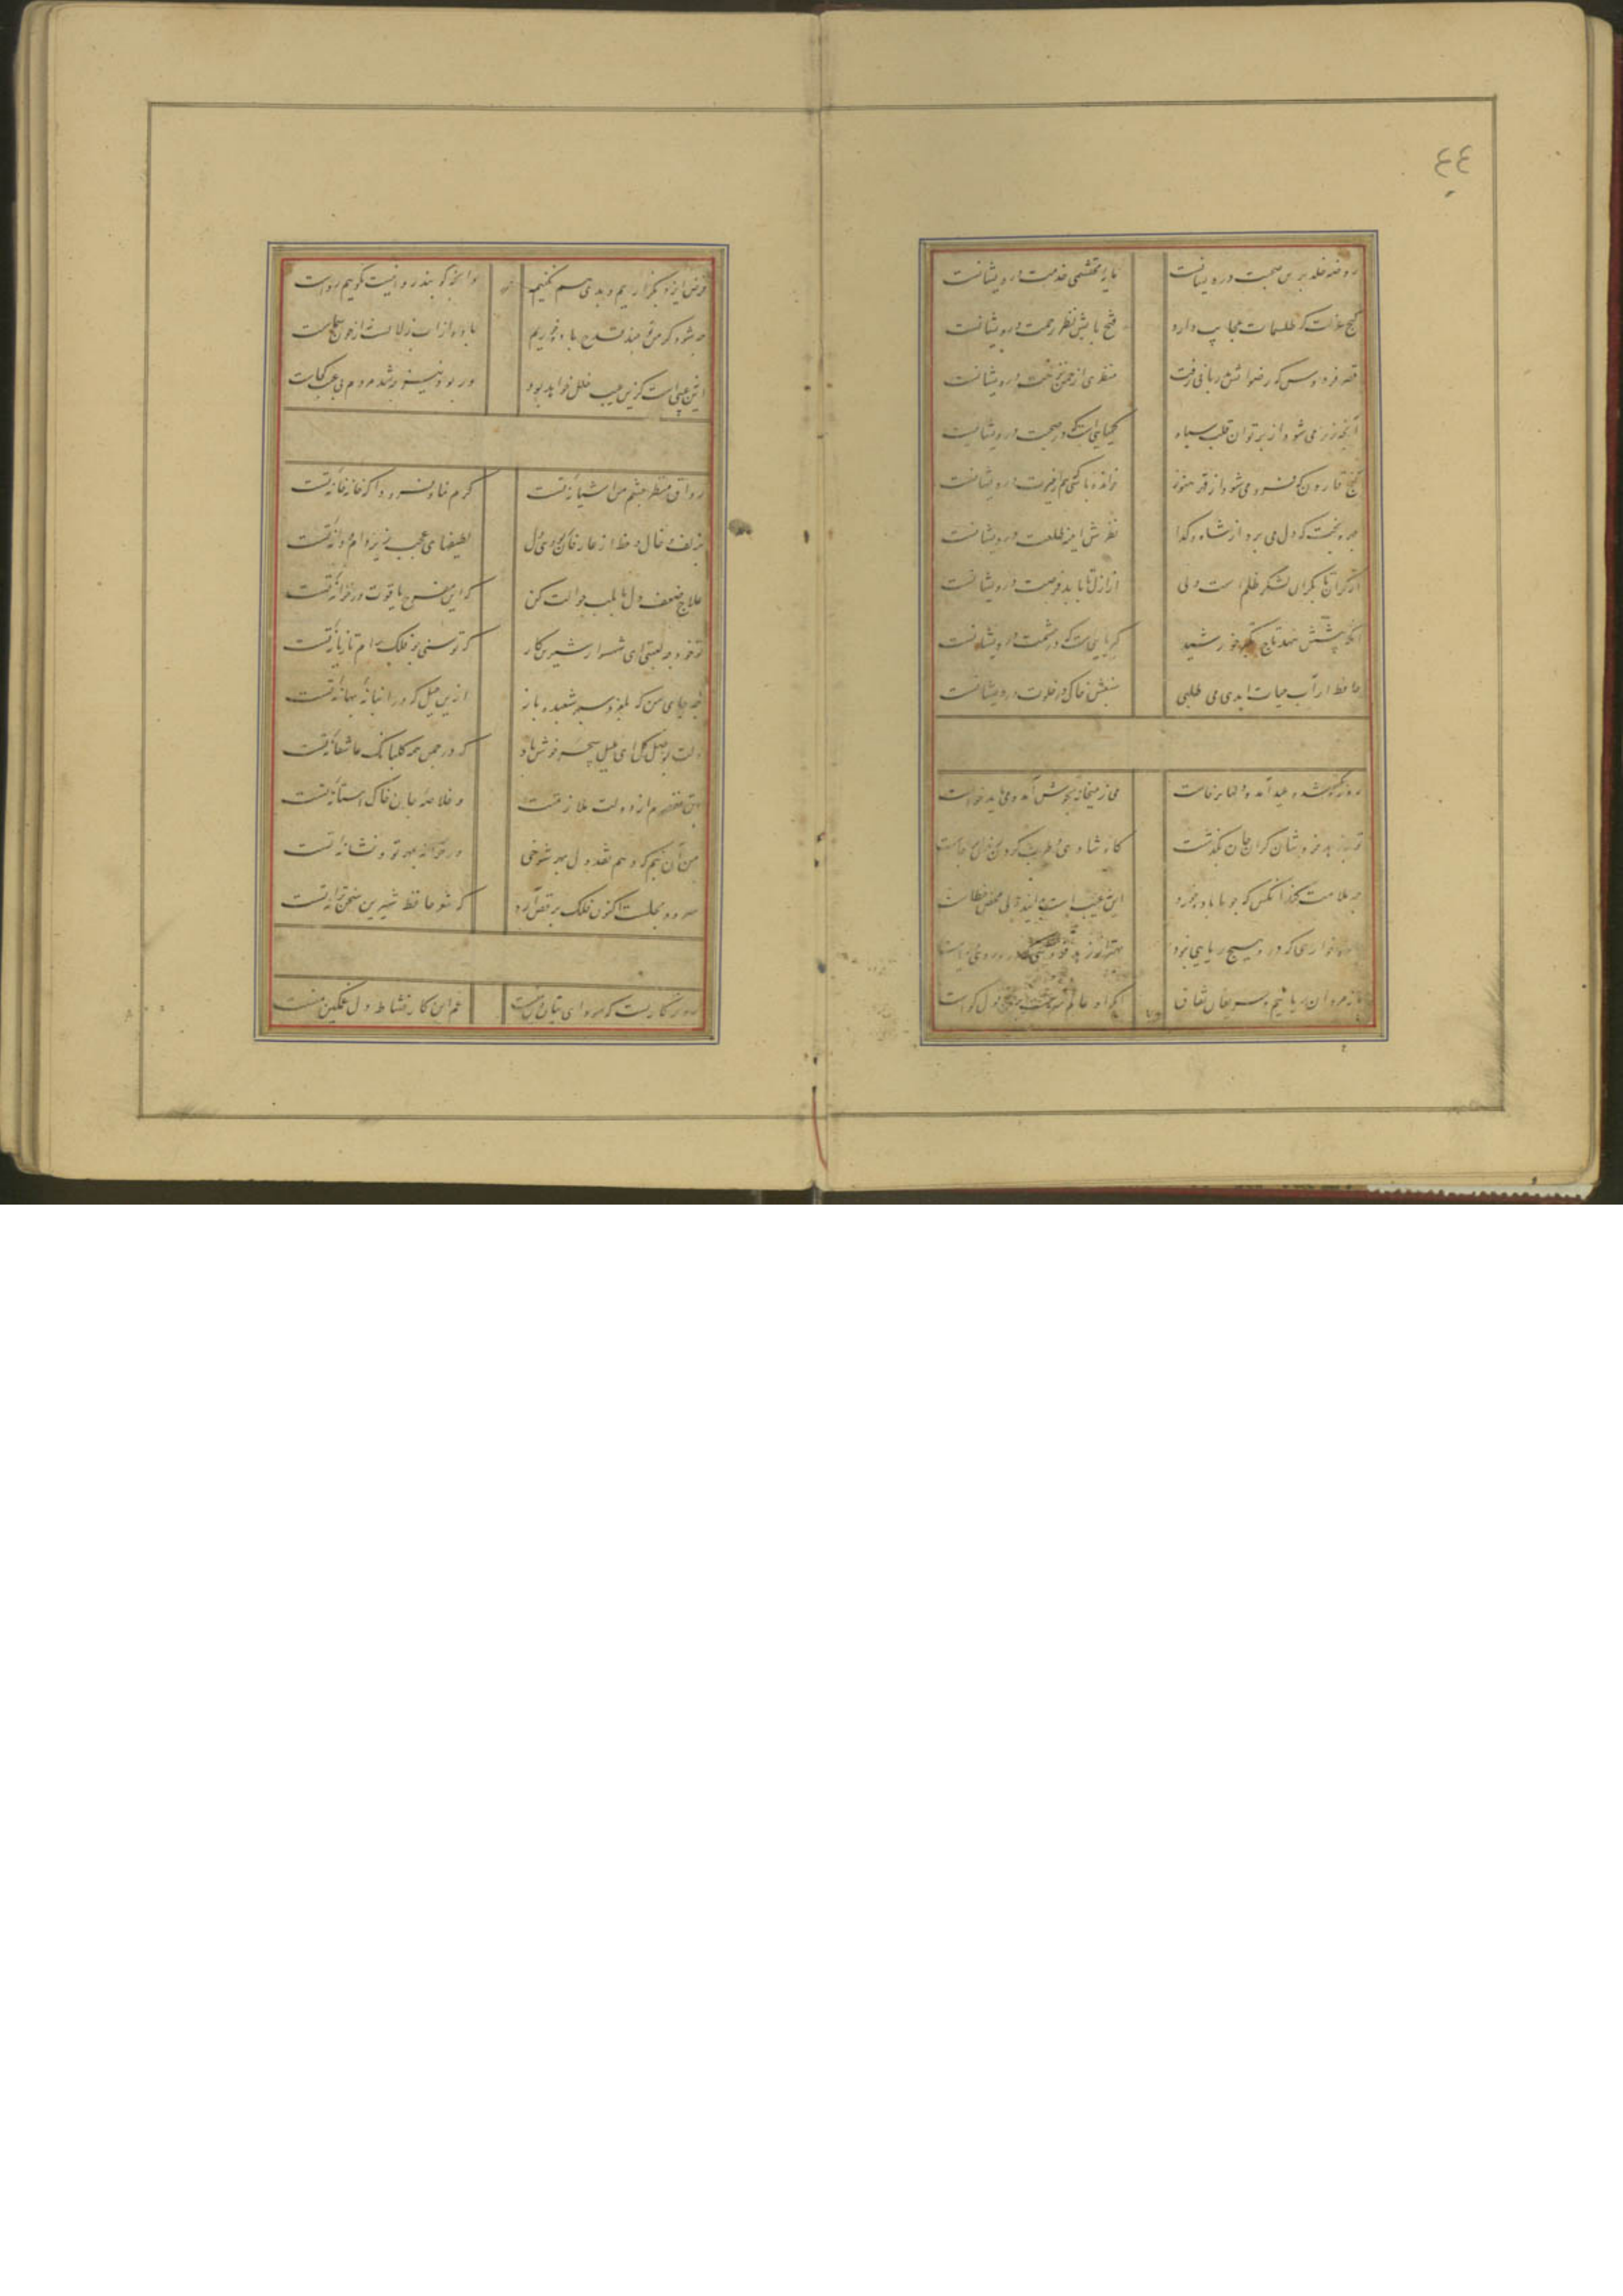 ٤٤
روضه خلد برین صحبت درویشانست مایه محتشمی خدمت درویشانست
گنج عزلت که طلسمات عجایب دارد فتح با بیش نظر رحمت درویشانست
قصر فردوس که رضوانش بدربانی رفت منظری از چمن نزهت درویشانست
آنچه زر می شود از پرتو آن قلب سیاه کیمیایی است که در صحبت درویشانست
گنج قارون که فرو می شود از قهر هنوز خوانده باشی که هم از غیرت درویشانست
که دل می برد از شاه و گدا نظرش اینه طلعت درویشانست
از کران تا بکران لشکر ظلم است ولی از ازل تا بابد فرصت درویشانست
آنکه پیشش بنهد تاج تکبر خورشید کبریایی است که در حشمت درویشانست
حافظ ار آب حیات ابدی می طلبی منبعش خاک در خلوت درویشانست
روزه یکسو شد و عید آمد و دلها برخاست می ز میخانه بجوش آمد و می باید خواست
نوبه زهد فروشان گران جان بگذشت گاه شادی و طرب کردن
چه ملامت کند آنکس که چو ما باده خورد این نه عیب است
باده خواری که درو هیچ ریایی نبود بهتر از زهد فروشی که درو روی و ریاست
ما نه مردان ریاییم و حریفان نفاق آنکه او عالم سرست برین حال گواست
فرض ایزد بگزاریم و بدی بکس نکنیم وانچه گویند روا نیست گوییم رواست
چه شود گر من و تو چند قدح باده خوریم باده از
این چه عیب است کزین عیب خلل خواهد بود ور بود نیز چه شد مردم بی عیب کجاست
رواق منظر چشم من اشیانه تست کرم نما و فرود ا که خانه خانه تست
بزلف و خال و خط از عارفان ربودی دل لطیفهای عجب زیر دام و دانه تست
علاج ضعف دل ما بلب حوالت کن که این مفرح یاقوت در خزانه تست
تو خود چه لعبتی ای شهسوار شیرین کار که توسنی چو فلک رام تازیانه تست
چه جای من که بلغزد سپهر شعبده باز ازین حیل که در انبانه بهانه تست
دلت بوصل گل ای بلبل سحر خوش باد که در چمن همه گلبانگ عاشقانه تست
بتن مقصرم از دولت ملازمتت و خلاصه جان خاک استانه تست
من آن نیم که دهم نقد دل بهر شوخی در خزانه بمهر تو و نشانه تست
سرود مجلست اکنون فلک برقص آرد که شعر حافظ شیرین سخن ترانه تست
روزگاریست که سودای بتان دین منست غم این کار نشاط دل غمگین منست